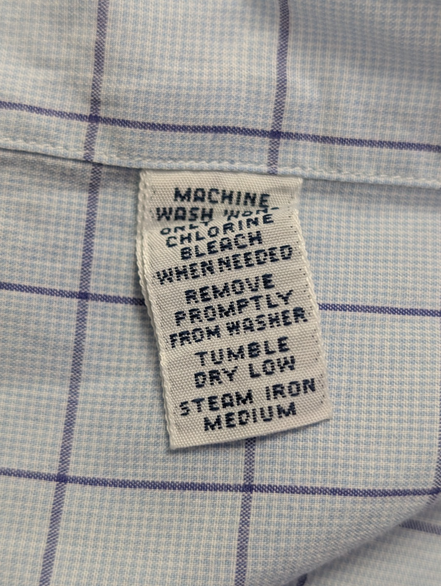 MACHINE
WASH
ONLY NON-
CHLORINE
BLEACH
WHEN NEEDED
REMOVE
PROMPTLY
FROM WASHER
TUMBLE
DRY LOW
STEAM IRON
MEDIUM